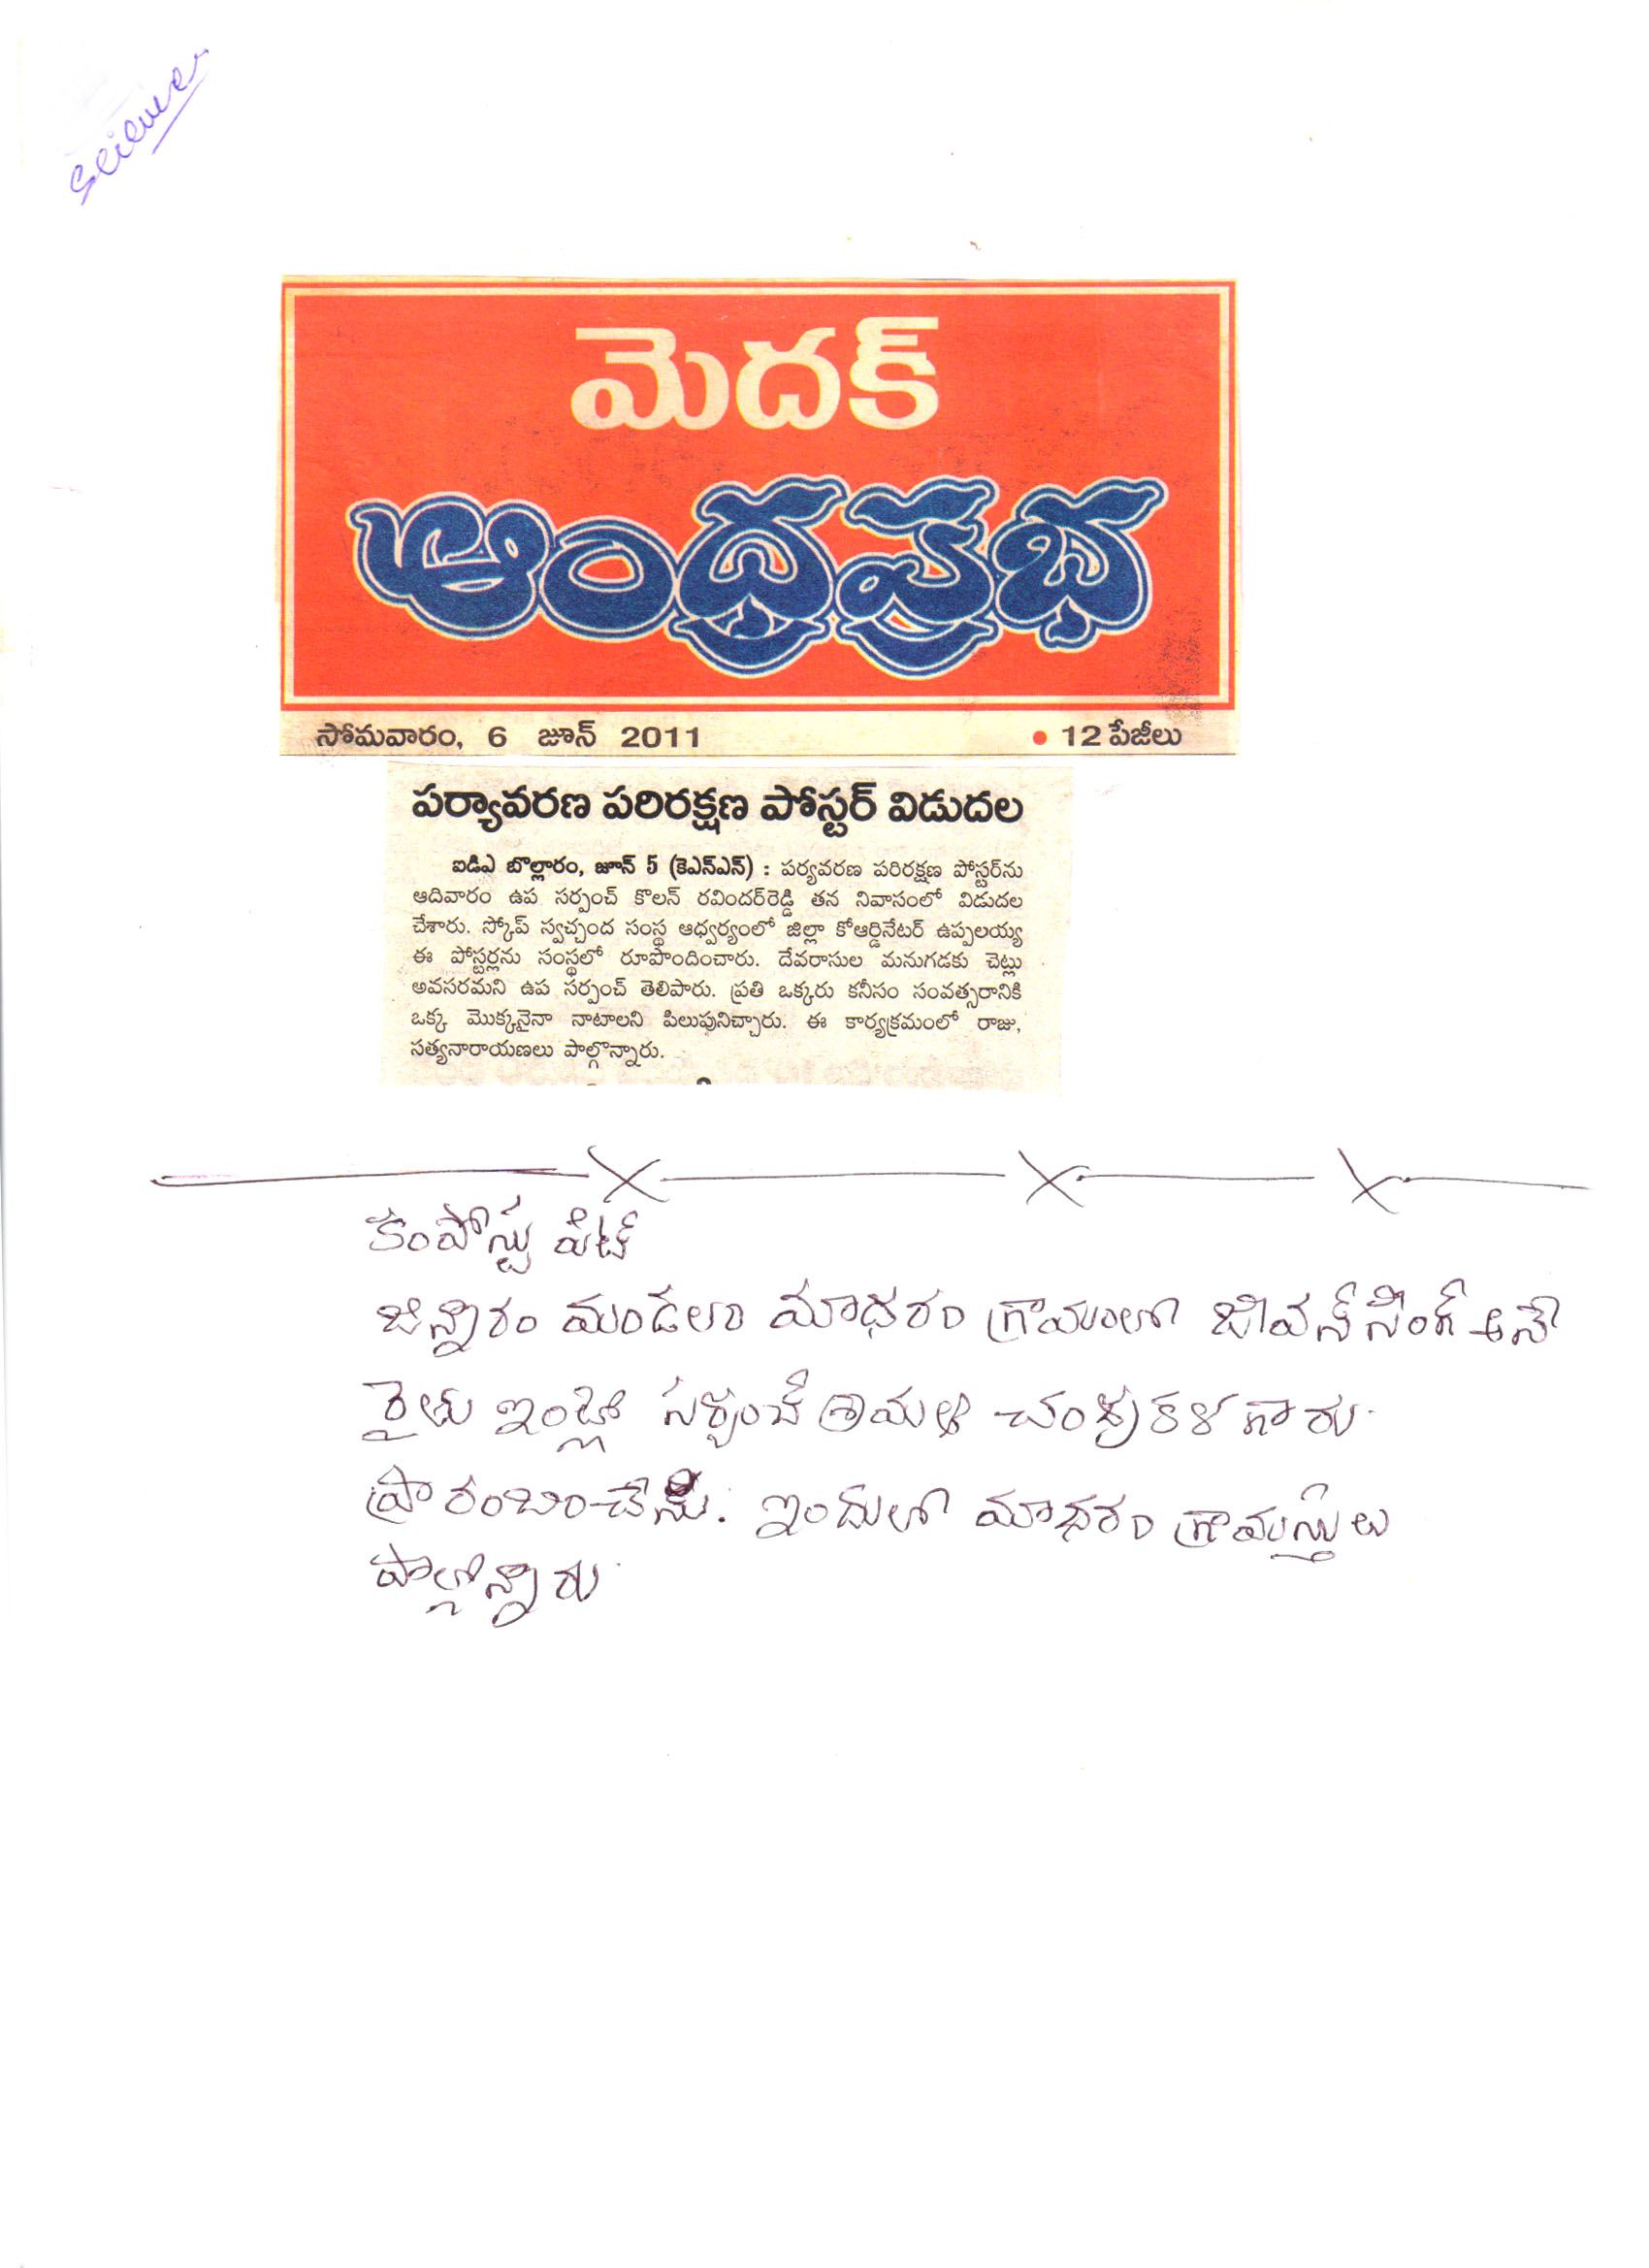 Science
మెదక్
ఆంధ్రప్రభ
సోమవారం, 6 జూన్ 2011 • 12 పేజీలు
పర్యావరణ పరిరక్షణ పోస్టర్ విడుదల
ఐడిఎ బొల్లారం, జూన్ 5 (కెఎన్ఎన్) : పర్యవరణ పరిరక్షణ పోస్టర్‌ను
ఆదివారం ఉప సర్పంచ్ కొలన్ రవిందర్‌రెడ్డి తన నివాసంలో విడుదల
చేశారు. స్కోప్ స్వచ్చంద సంస్థ ఆధ్వర్యంలో జిల్లా కోఆర్డినేటర్ ఉప్పలయ్య
ఈ పోస్టర్లను సంస్థలో రూపొందించారు. దేవరాసుల మనుగడకు చెట్లు
అవసరమని ఉప సర్పంచ్ తెలిపారు. ప్రతి ఒక్కరు కనీసం సంవత్సరానికి
ఒక్క మొక్కనైనా నాటాలని పిలుపునిచ్చారు. ఈ కార్యక్రమంలో రాజు,
సత్యనారాయణలు పాల్గొన్నారు.
కంపోస్టు పిట్
జిన్నారం మండలం మాధారం గ్రామంలో జీవన్ సింగ్ అనే
రైతు ఇంట్లో సర్పంచ్ శ్రీమతి చంద్రకళ గారు
ప్రారంబించెను. ఇందులో మాధారం గ్రామస్తులు
పాల్గొన్నారు